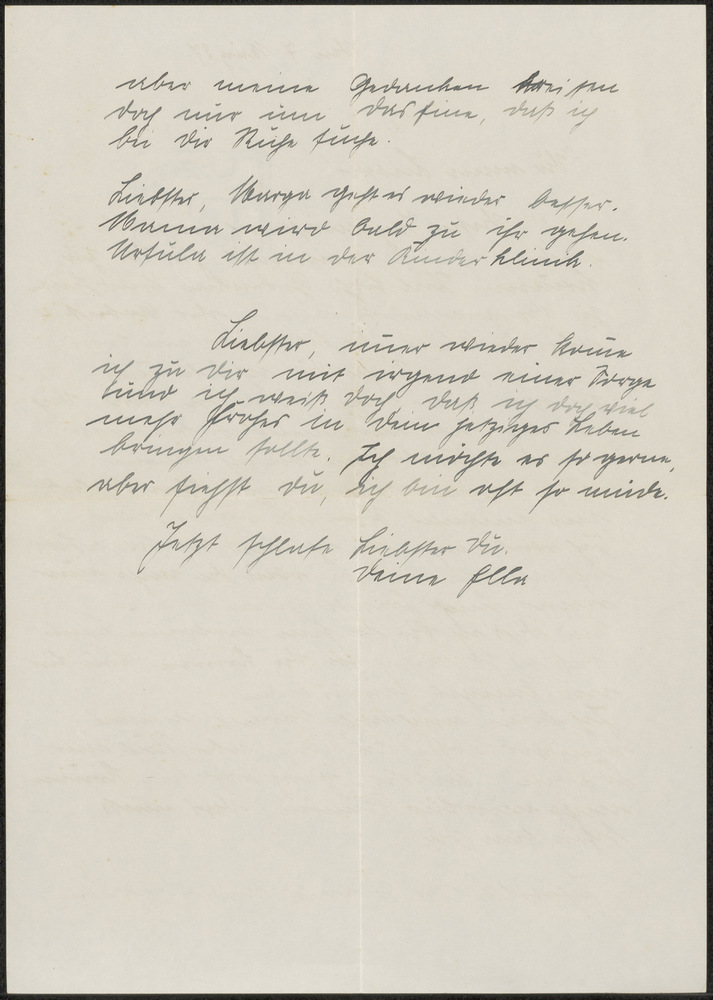 aber meine Gedanken kreisen
doch nur um das Eine, daß ich
bei Dir Ruhe suche.
Liebster, Marga geht es wieder besser.
Mama wird bald zu ihr gehen.
Ursula ist in der Kinderklinik.
Liebster, im̅er wieder kom̅e
ich zu Dir mit irgend einer Sorge
und ich weiß doch daß ich doch viel
mehr Frohes in Dein jetziges Leben
bringen sollte. Ich möchte es so gerne,
aber siehst Du, ich bin oft so müde.
Jetzt schlafe Liebster Du.
Deine Ella